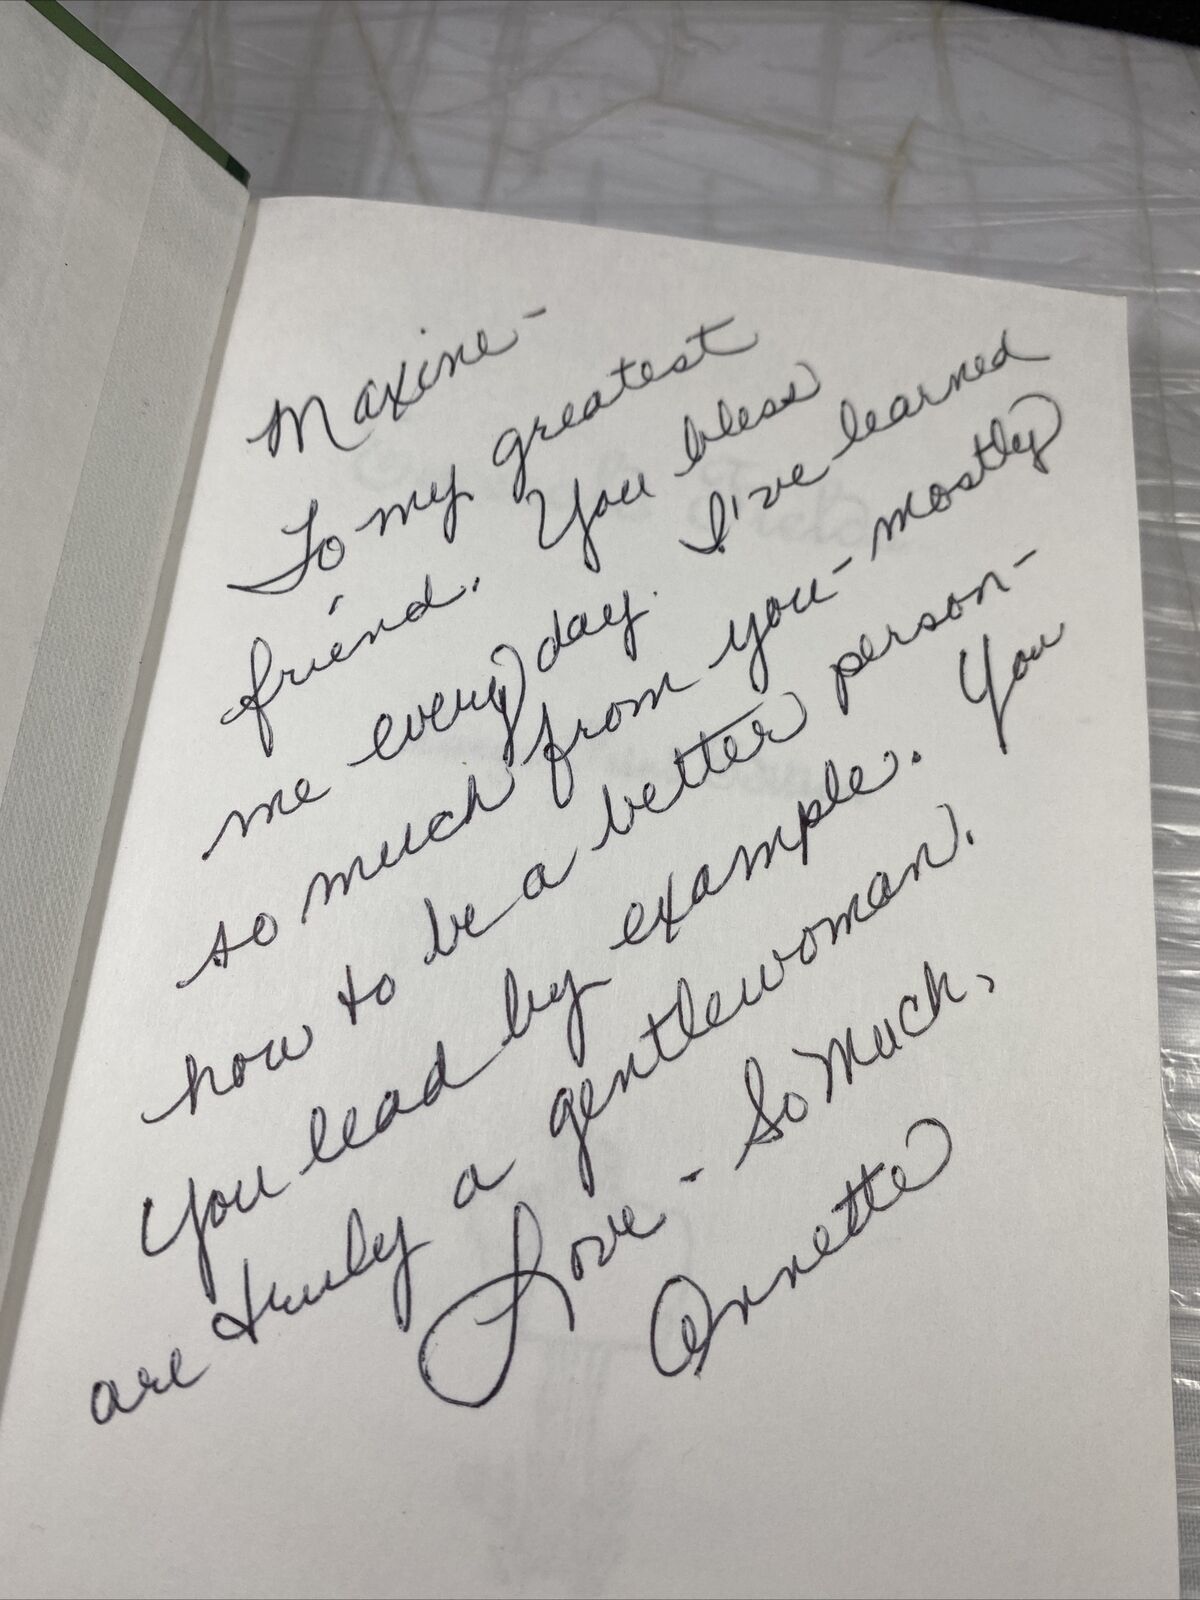 Maxine-
To my greatest
friend. You bless
me every day. I've learned
so much from you - mostly
how to be a better person -
You lead by example. You
are truly a gentlewoman.
Love - So Much,
Annette